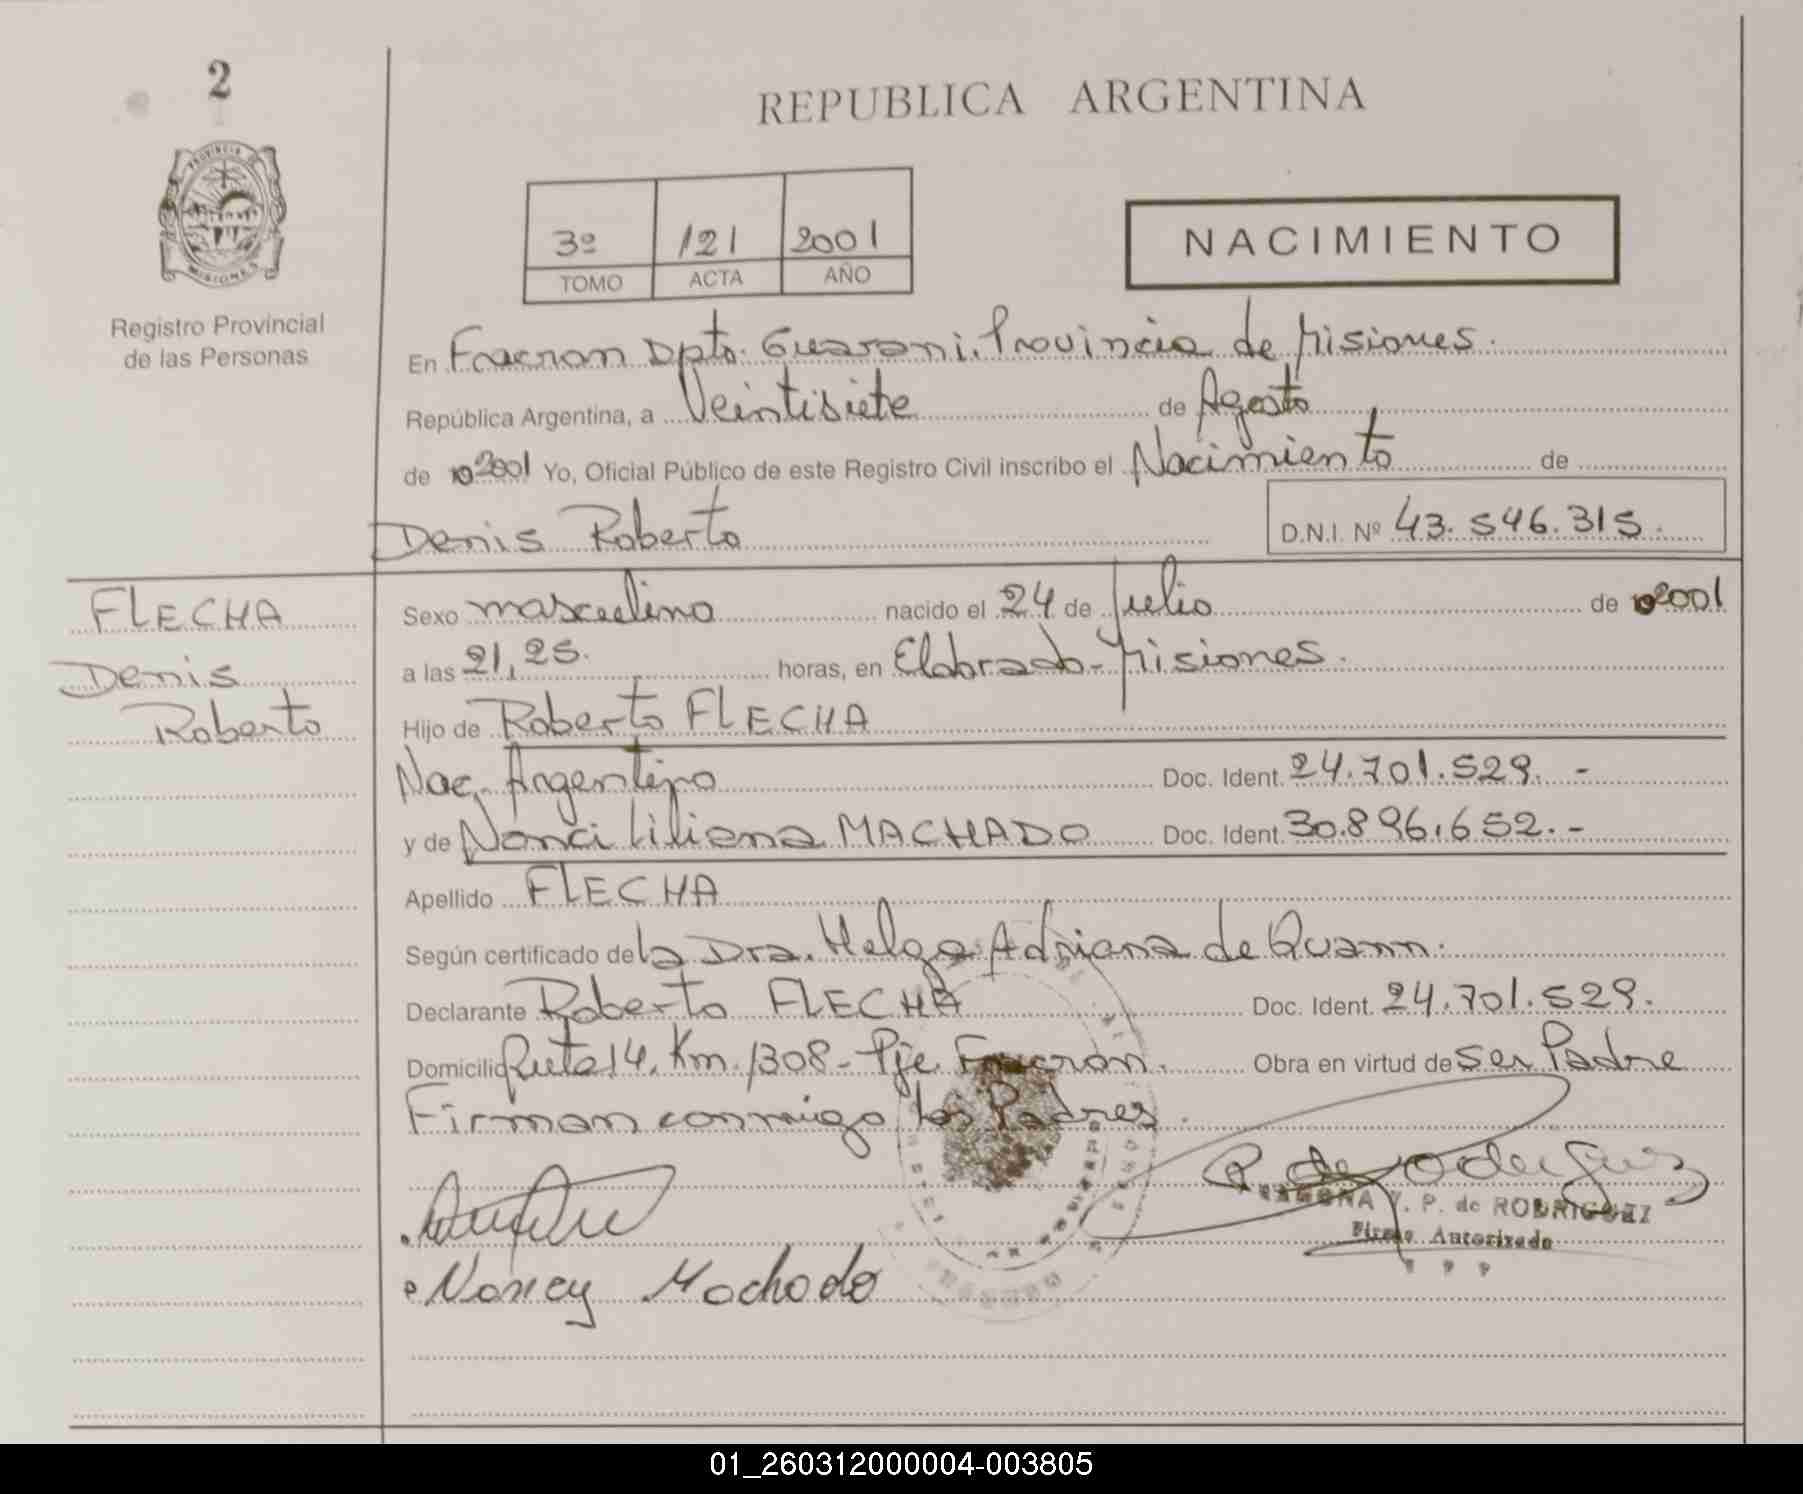 2
REPUBLICA ARGENTINA
PROVINCIA DE
MISIONES
3º 121 2001
TOMO ACTA AÑO
NACIMIENTO
Registro Provincial
de las Personas
En Fracran Dpto. Guarani. Provincia de Misiones.
República Argentina, a Veintisiete de Agosto
de 2001 Yo, Oficial Público de este Registro Civil inscribo el Nacimiento de
Denis Roberto D.N.I. Nº 43.546.315.
FLECHA
Denis
Roberto
Sexo masculino nacido el 24 de Julio de 2001
a las 21,25. horas, en Elobrado-Misiones.
Hijo de Roberto FLECHA
Nac. Argentino Doc. Ident. 24.701.529. -
y de Nanci Liliana MACHADO Doc. Ident. 30.896.652. -
Apellido FLECHA
Según certificado de la Dra. Helga Adriana de Quann.
Declarante Roberto FLECHA Doc. Ident. 24.701.529.
Domicilio Ruta 14, Km. 1308 - Pje. Fracran. Obra en virtud de ser Padre
Firman conmigo los Padres.
Y. P. de RODRIGUEZ
Firma Autorizada
Nancy Machado
01_260312000004-003805